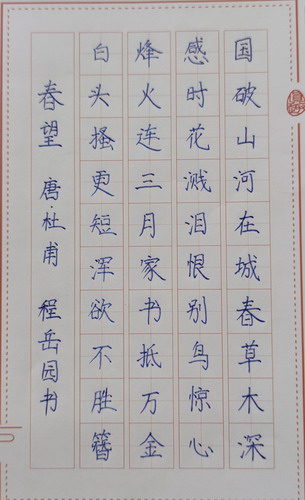 国破山河在城春草木深
感时花溅泪恨别鸟惊心
烽火连三月家书抵万金
白头搔更短浑欲不胜簪
春望 唐·杜甫 程岳园书